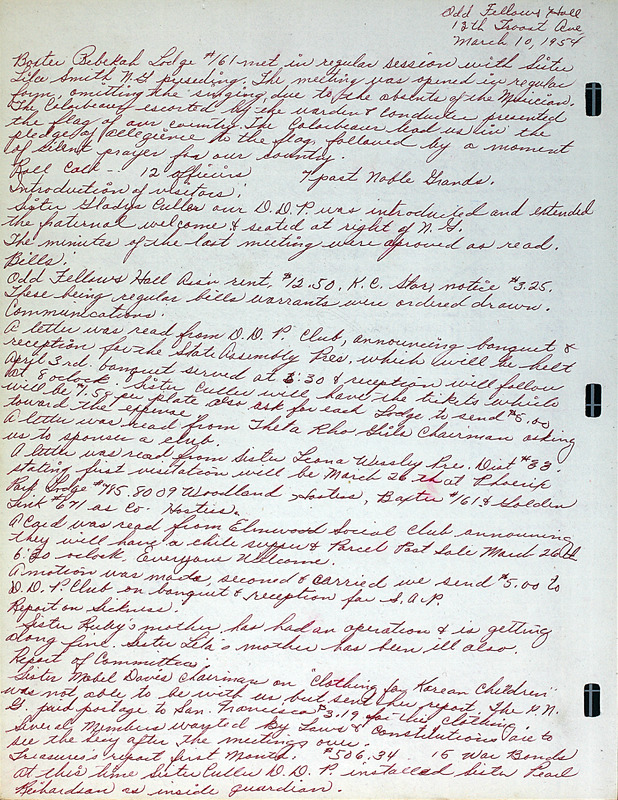 Odd Fellows Hall
13th Troost Ave
March 10, 1954
Baxter Rebekah Lodge #161 met in regular session with Sister
Lila Smith N.G. presiding. The meeting was opened in regular
form, omitting the singing, due to the absents of the Musician.
The Colorbearer escorted by the warden & Conductor presented
the flag of our country. The Colorbearer lead us in the
pledge of allegience to the flag, followed by a moment
of silent prayer for our country.
Roll Call -- 12 officers 7 past Noble Grands.
Introduction of visitors:
Sister Gladys Culler our D.D.P. was introducted and extended
the fraternal welcome & seated at right of N.G.
The minutes of the last meeting were aproved as read.
Bills:
Odd Fellows Hall Ass'n rent, $12.50, K.C. Star, notice $3.25.
These being regular bills warrants were ordered drawn.
Communications:
A letter was read from D.D.P. Club, announcing banquet &
reception for the State Assembly Pres. which will be helt
April 3rd. banquet served at 6:30 & reception will follow
at 8 oclock. Sister Culler will have the tickets which
will be per plate also ask for each Lodge to send $5.00
toward the expense.
A letter was read from Theta Rho Girls Chairman asking
us to sponser a club.
A letter was read from Sister Leona Pre. Dist #33.
stating first visitation will be March 26th at Phoenix
Park Lodge 8009 Woodland Hostess, Baxter #161 & Golden
Link #671 as Co. Hostess.
A Card was read from Elmwood Social Club announcing
they will have a chile supper & Parcel Post Sale March
6:30 oclock. Everyone Welcome.
A motion was made, second & carried we send $5.00 to
D.D.P. Club on banquet & reception for S.A.P.
Report on Sickness:
Sister Ruby's mother has had an operation & is getting
along fine. Sister Lila's mother has been ill also.
Report of Committees:
Sister Mabel Davis Chairman on "Clothing for Korean Children"
was not able to be with us but sent her report. The N.
G. paid postage to San. Francisco $3.19 for this clothing.
Several Members wanted By Laws & Constitutions are to
see the Sec'y after the meetings over.
Treasurer's report first Month: $506.34 15 War Bonds
at this time Sister Culler D.D.P. installed Sister Pearl
Richardson as inside guardian.